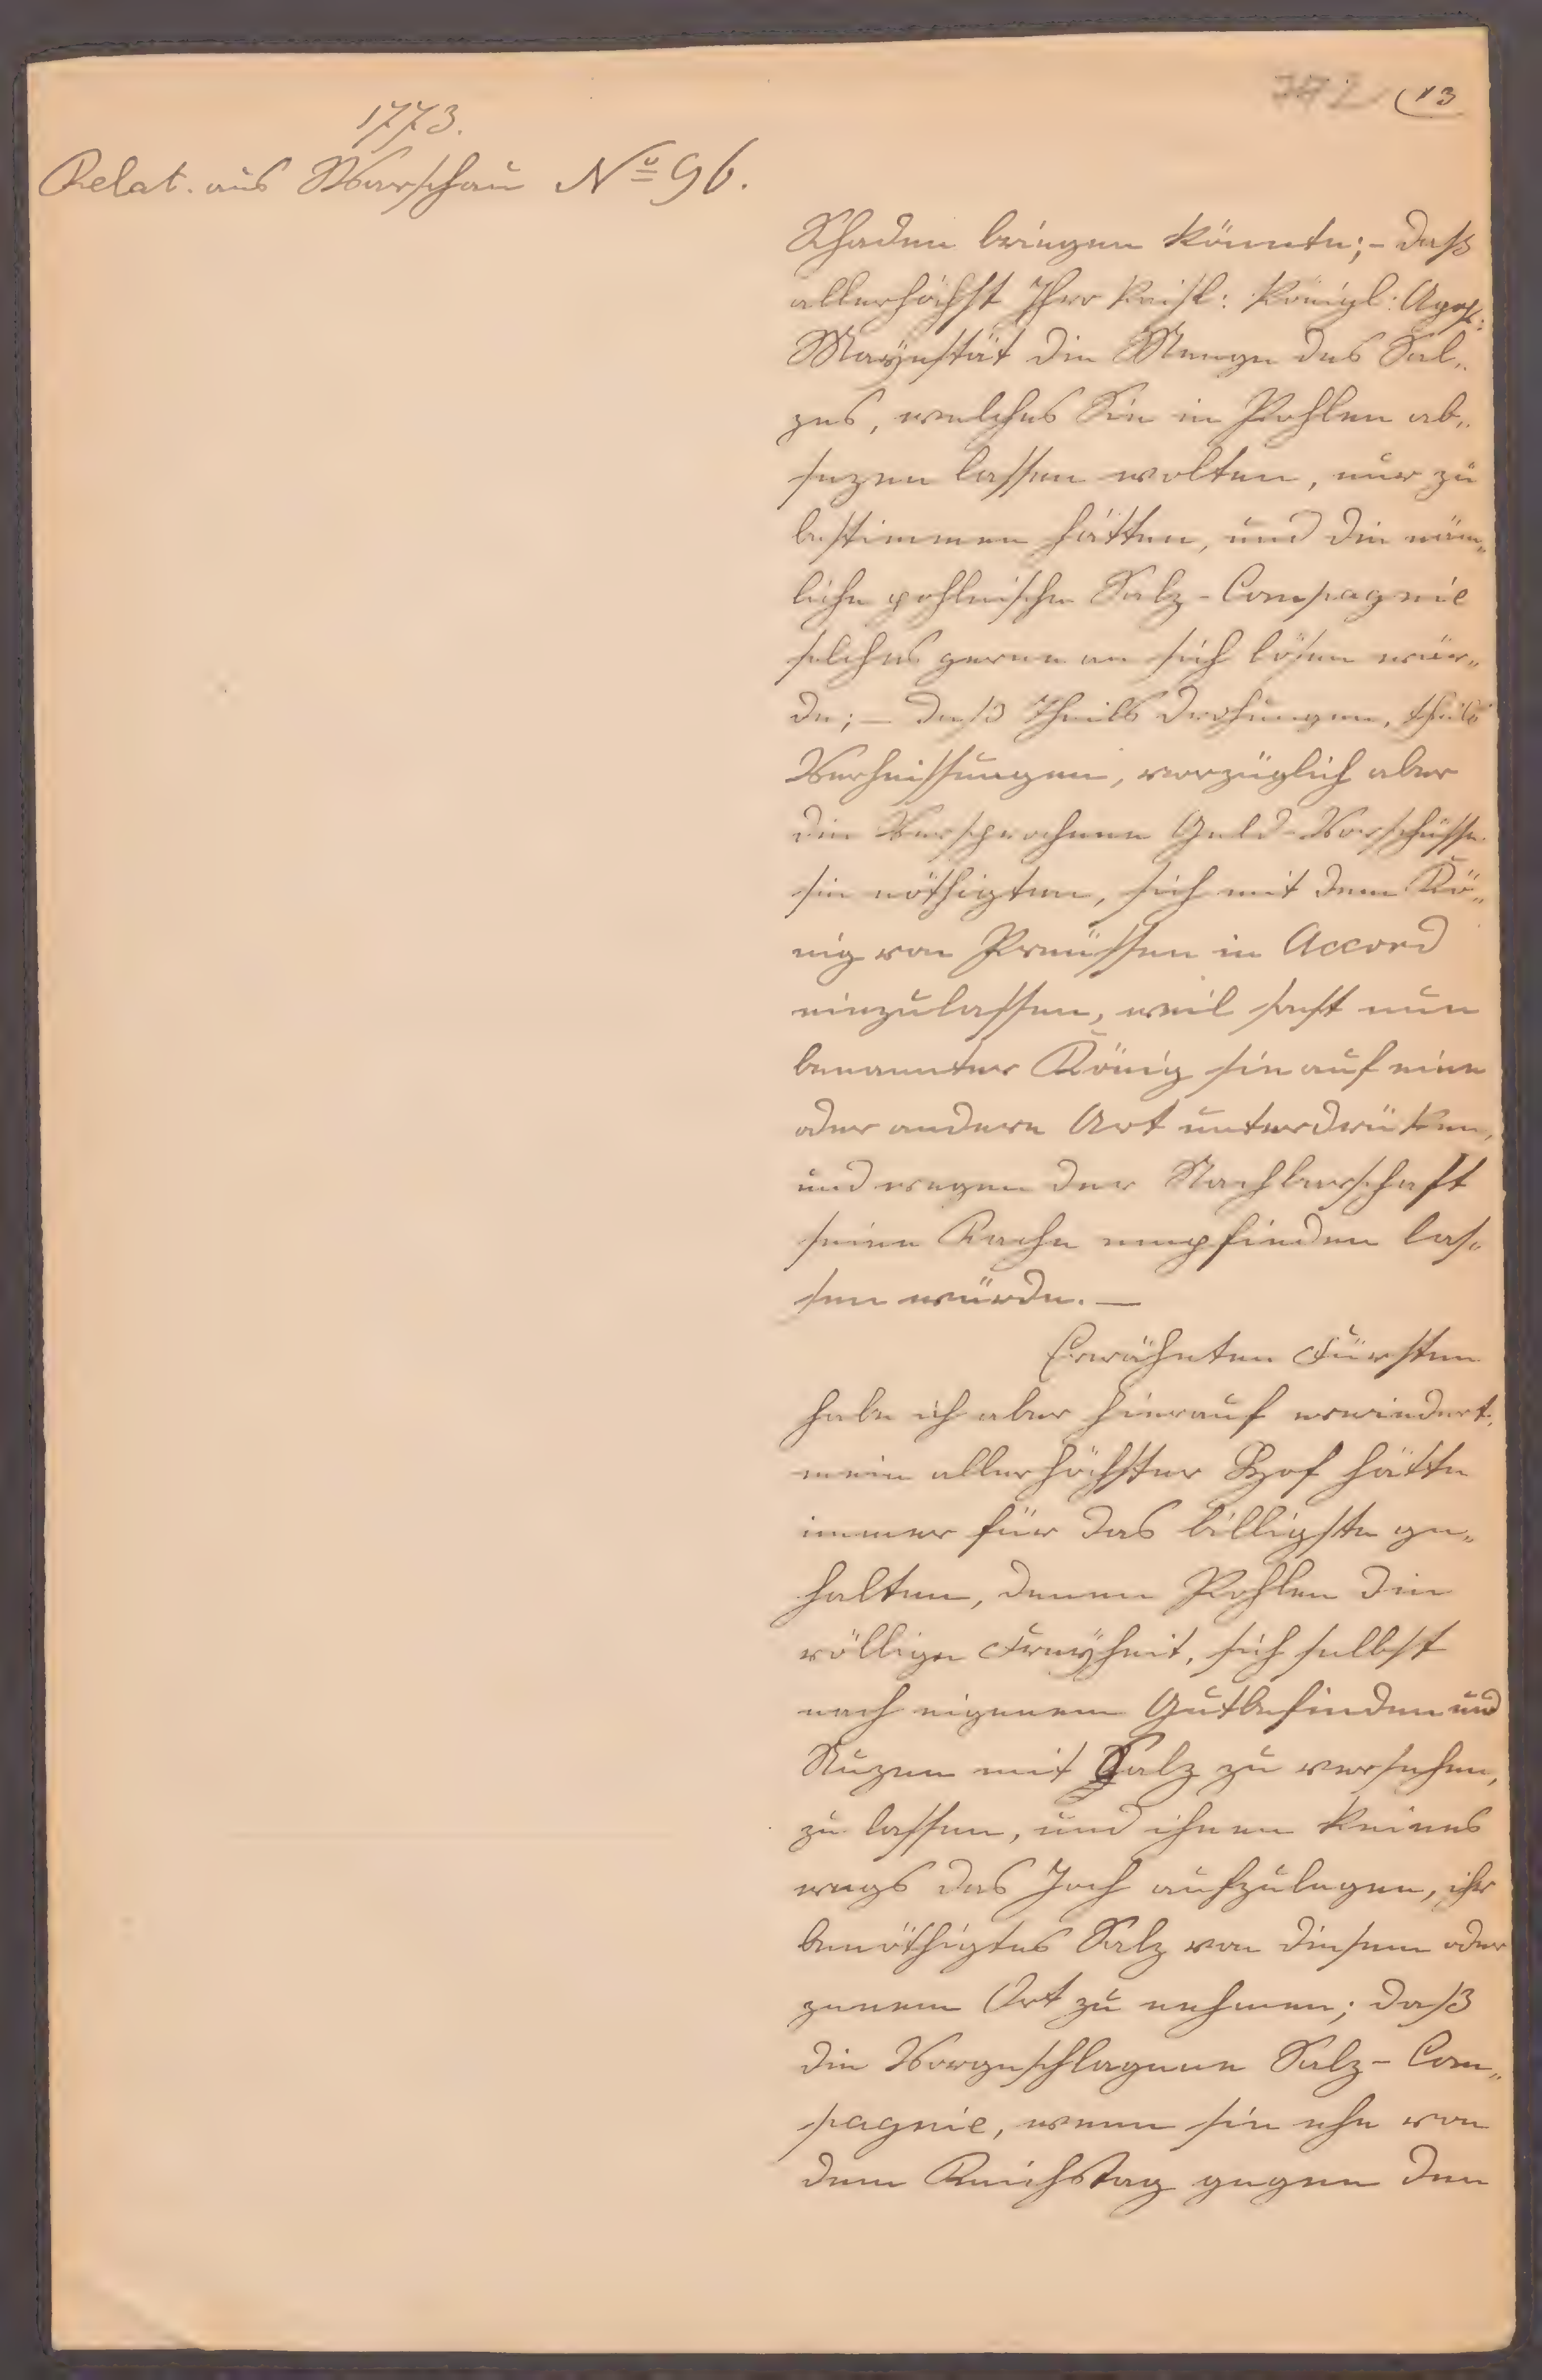 13
1773.
Relat. aus Warschau No 96.
Schaden bringen könnte; - daß
allerhöchst Ihre Kaisl: Königl: Apost:
Mayestät die Menge des Sal„
zes, welches Sie in Pohlen ab„
sezen lassen wolten, nur zu
bestimmen hätten, und die näm„
liche pohlnische Salz-Compagnie
solches gerne an sich lösen wür„
de; — daß theils Drohungen, theils
Verheissungen, vorzüglich aber
die Versprochene Geld-Vorschüsse
sie nöthigten, sich mit dem Kö„
nig von Preüssen in Accord
einzulassen, weil sonst nun
benannter König sie auf eine
oder andere Art unterdrüken,
und wegen der Nachbarschaft
seine Rache empfinden las„
sen würde. —
Erwähnten Fürsten
habe ich aber hierauf erwiedert,
mein allerhöchster Hof hätte
immer für das billigste ge„
halten, denen Pohlen die
völlige Freyheit, sich selbst
nach eigenem Gutbefinden und
Nuzen mit Salz zu versehen,
zu lassen, und ihnen keines
wegs das Joch aufzulegen, ihr
benöthigtes Salz von diesem oder
jenem Ort zu nehmen; daß
die Vorgeschlagene Salz-Com„
pagnie, wenn sie ehe von
dem Reichstag gegen den